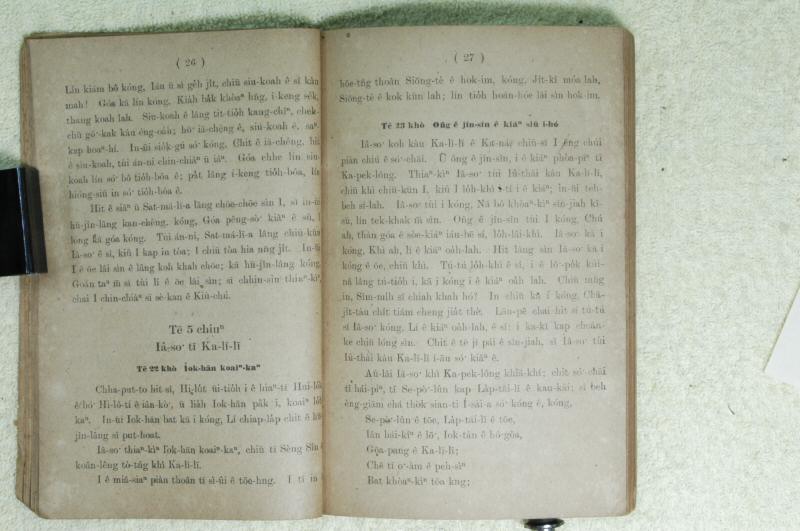 ( 26 )
Lín kiám bô kóng, Iáu ū sì ge̍h ji̍t, chiū siu-koah ê sî kàu
mah! Góa kā lín kóng, Kia̍h ba̍k khòaⁿ hn̂g, í-keng se̍k,
thang koah lah. Siu-koah ê lâng tit-tio̍h kang-chîⁿ, chek-
chū gō͘-kak kàu éng-oa̍h; hō͘ iā-chéng ê, siu-koah ê, saⁿ-
kap hoaⁿ-hí. In-ūi sio̍k-gú só͘ kóng, Chi̍t ê iā-chéng, hit
ê siu-koah, tùi án-ni chin-chiàⁿ ū iáⁿ. Góa chhe lín siu-
koah lín só͘ bô tio̍h-bôa ê; pa̍t lâng í-keng tio̍h-bôa, lín
hióng-siū in só͘ tio̍h-bôa ê.
Hit ê siâⁿ ū Sat-má-lī-a lâng chōe-chōe sìn I, sī in-ūi
hū-jîn-lâng kan-chèng, kóng, Góa pêng-sò͘ kiâⁿ ê sū, I
lóng kā góa kóng. Tùi án-ni, Sat-má-lī-a lâng chiū-kūn
Iâ-so͘ ê sî, kiû I kap in tòa; I chiū tòa hia nn̄g ji̍t. In-ūi
I ê ōe lâi sìn ê lâng koh khah chōe; kā hū-jîn-lâng kóng,
Goán taⁿ m̄ sī tùi lí ê ōe lâi sìn; sī chhin-sin thiaⁿ-kìⁿ,
chai I chin-chiàⁿ sī sè-kan ê Kiù-chú.
Tē 5 chiuⁿ
Iâ-so͘ tī Ka-lī-lī
Tē 22 khò Iok-hān koaiⁿ-kaⁿ
Chha-put-to hit sî, Hi-lu̍t ūi-tio̍h i ê hiaⁿ-tī Hui-lī
ê bó͘ Hi-lô-tí ê iân-kò͘, ū lia̍h Iok-hān pa̍k i, koaiⁿ lo̍h
kaⁿ. In-ūi Iok-hān bat kā i kóng, Lí chiap-la̍p chit ê hū-
jîn-lâng sī put-hoat.
Iâ-so͘ thiaⁿ-kìⁿ Iok-hān koaiⁿ-kaⁿ, chiū tī Sèng Sîn ê
koân-lêng tò-tńg khì Ka-lī-lī.
I ê miâ-siaⁿ piàn thoân tī sì-ûi ê tōe-hng. I tī in
( 27 )
hōe-tn̂g thoân Siōng-tè ê hok-im, kóng, Ji̍t-kî móa lah,
Siōng-tè ê kok kūn lah; lín tio̍h hoán-hóe lâi sìn hok-im.
Tē 23 khò Ông ê jîn-sîn ê kiáⁿ siū i-hó
Iâ-so͘ koh kàu Ka-lī-lī ê Ka-ná, chiū-sī I ēng chúi
piàn chiú ê só͘-chāi. Ū ông ê jîn-sîn, i ê kiáⁿ phòa-pīⁿ tī
Ka-pek-lông. Thiaⁿ-kìⁿ Iâ-so͘ tùi Iû-thài kàu Ka-lī-lī,
chiū khì chiū-kūn I, kiû I lo̍h-khì i-tī i ê kiáⁿ; in-ūi teh-
beh sí-lah. Iâ-so͘ tùi i kóng, Nā bô khòaⁿ-kìⁿ sîn-jiah kî-
sū, lín tek-khak m̄ sìn. Ông ê jîn-sîn tùi I kóng, Chú
ah, thàn góa ê sòe-kiáⁿ iáu-bē sí, lo̍h-lâi-khì. Iâ-so͘ kā i
kóng, Khì ah, lí ê kiáⁿ oa̍h-lah. Hit lâng sìn Iâ-so͘ kā i
kóng ê ōe, chiū khì. Tú-tú lo̍h-khì ê sî, i ê lô͘-po̍k kúi-
nā lâng tú-tio̍h i, kā i kóng i ê kiáⁿ oa̍h lah. Chiū mn̄g
in, Sím-mih sî chiah khah hó? In chiū kā i kóng, Chā-
ji̍t-tàu chi̍t tiám cheng jia̍t thè. Lāu-pē chai hit sî tú-tú
sī Iâ-so͘ kóng, Lí ê kiáⁿ oa̍h-lah, ê sî; i ka-kī kap choân-
ke chiū lóng sìn. Chit ê tē jī pái ê sîn-jiah, sī Iâ-so͘ tùi
Iû-thài kàu Ka-lī-lī í-āu só͘ kiâⁿ ê.
Āu-lâi Iâ-so͘ khì Ka-pek-lông khiā-khí; chit só͘-chāi
tī hái-piⁿ, tī Se-pò͘-lûn kap La̍p-tāi-lī ê kau-kài; sī beh
èng-giām chá tho̍k sian-ti Í-sài-a só͘ kóng ê, kóng,
Se-pò͘-lûn ê tōe, La̍p-tāi-lī ê tōe,
Iân hái-kîⁿ ê lō͘, Iok-tàn ê hō-gōa,
Gōa-pang ê Ka-lī-lī;
Chē tī o͘-àm ê peh-sìⁿ
Bat khòaⁿ-kìⁿ tōa kng;